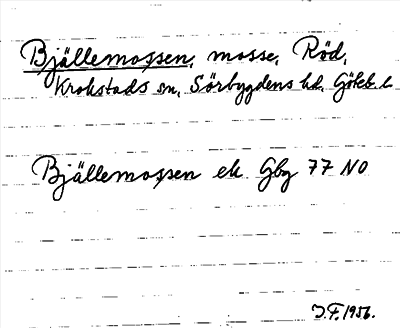 Bjällemossen, mosse, Röd,
Krokstads sn, Sörbygdens hd, Göteb. l.
Bjällemossen ek. Gbg 77 NO
J.F. 1956.